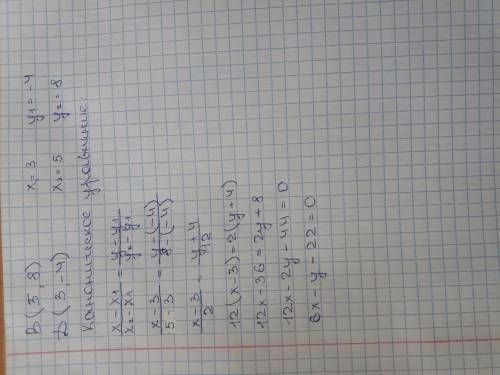 B(5,8) x₁=3 y₁=-4
D(3,-4) x₂=5 y₂=8
Каноническое уравнение:
x-x₁/x₂-x₁ = y-y₁/y₂-y₁
x-3/5-3 = y-(-4)/8-(-4)
x-3/2 = y+4/12
12(x-3)=2(y+4)
12x-36=2y+8
12x-2y-44=0
6x-y-22=0